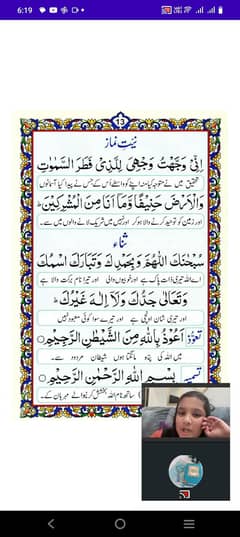 6:19
13
نیّت نماز
اِنِّیْ وَجَّهْتُ وَجْهِیَ لِلَّذِیْ فَطَرَ السَّمٰوٰتِ
تحقیق میں نے متوجہ کیا منہ اپنے کو واسطے اُس کے جس نے پیدا کیا آسمانوں
وَالْاَرْضَ حَنِیْفًا وَّمَآ اَنَا مِنَ الْمُشْرِکِیْنَ ط
اور زمین کو توحید کرنے والا ہو کر اور نہیں میں شریک لانے والوں میں سے۔
ثناء
سُبْحٰنَکَ اللّٰهُمَّ وَبِحَمْدِکَ وَتَبَارَکَ اسْمُکَ
اے اللہ تیری ذات پاک ہے اور خوبیوں والی اور تیرا نام برکت والا ہے
وَتَعَالٰی جَدُّکَ وَلَآ اِلٰهَ غَیْرُکَ ط
اور تیری شان اونچی ہے اور تیرے سوا کوئی معبود نہیں
تعوّذ اَعُوْذُ بِاللّٰهِ مِنَ الشَّیْطٰنِ الرَّجِیْمِ
میں اللہ کی پناہ مانگتا ہوں شیطان مردود سے۔
تسمیہ بِسْمِ اللّٰهِ الرَّحْمٰنِ الرَّحِیْمِ
ساتھ نام اللہ بخشش کرنیوالے مہربان کے۔